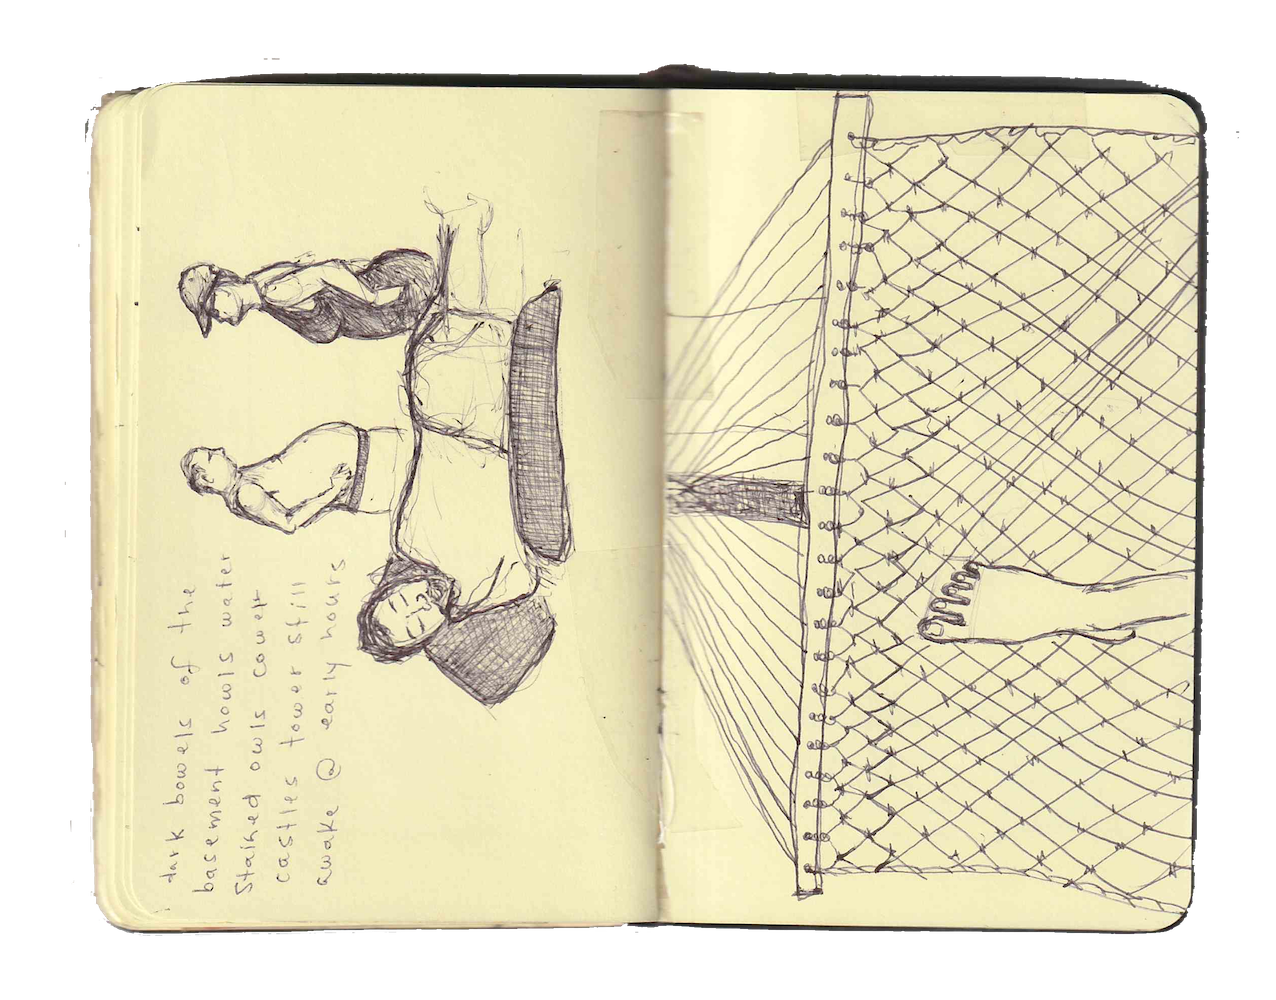 dark bowels of the
basement howls water
Stained owls cower
castles tower still
awake @ early hours